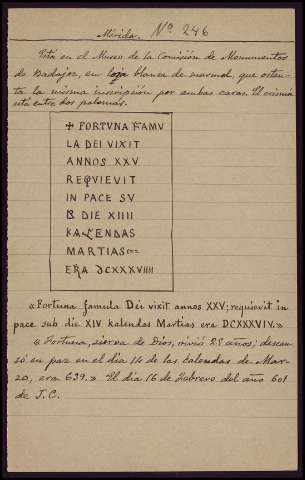 Mérida. Nº 246
Está en el Museo de la Comisión de Monumentos
de Badajoz, en loza blanca de marmol, que osten-
ta la misma inscripción por ambas caras. El crismón
está entre dos palomas.
+ FORTVNA FAMV
LA DEI VIXIT
ANNOS XXV
REQVIEVIT
IN PACE SV
B DIE XIIII
KALENDAS
MARTIAS
ERA DCXXXVIIII
«Fortuna famula Dei vixit annos XXV; requievit in
pace sub die XIV kalendas Martias era DCXXXVIX.»
«Fortuna, sierva de Dios, vivió 25 años; descan-
só en paz en el dia 14 de las Calendas de Mar-
zo, era 639.» El dia 16 de Febrero del año 601
de J.C.